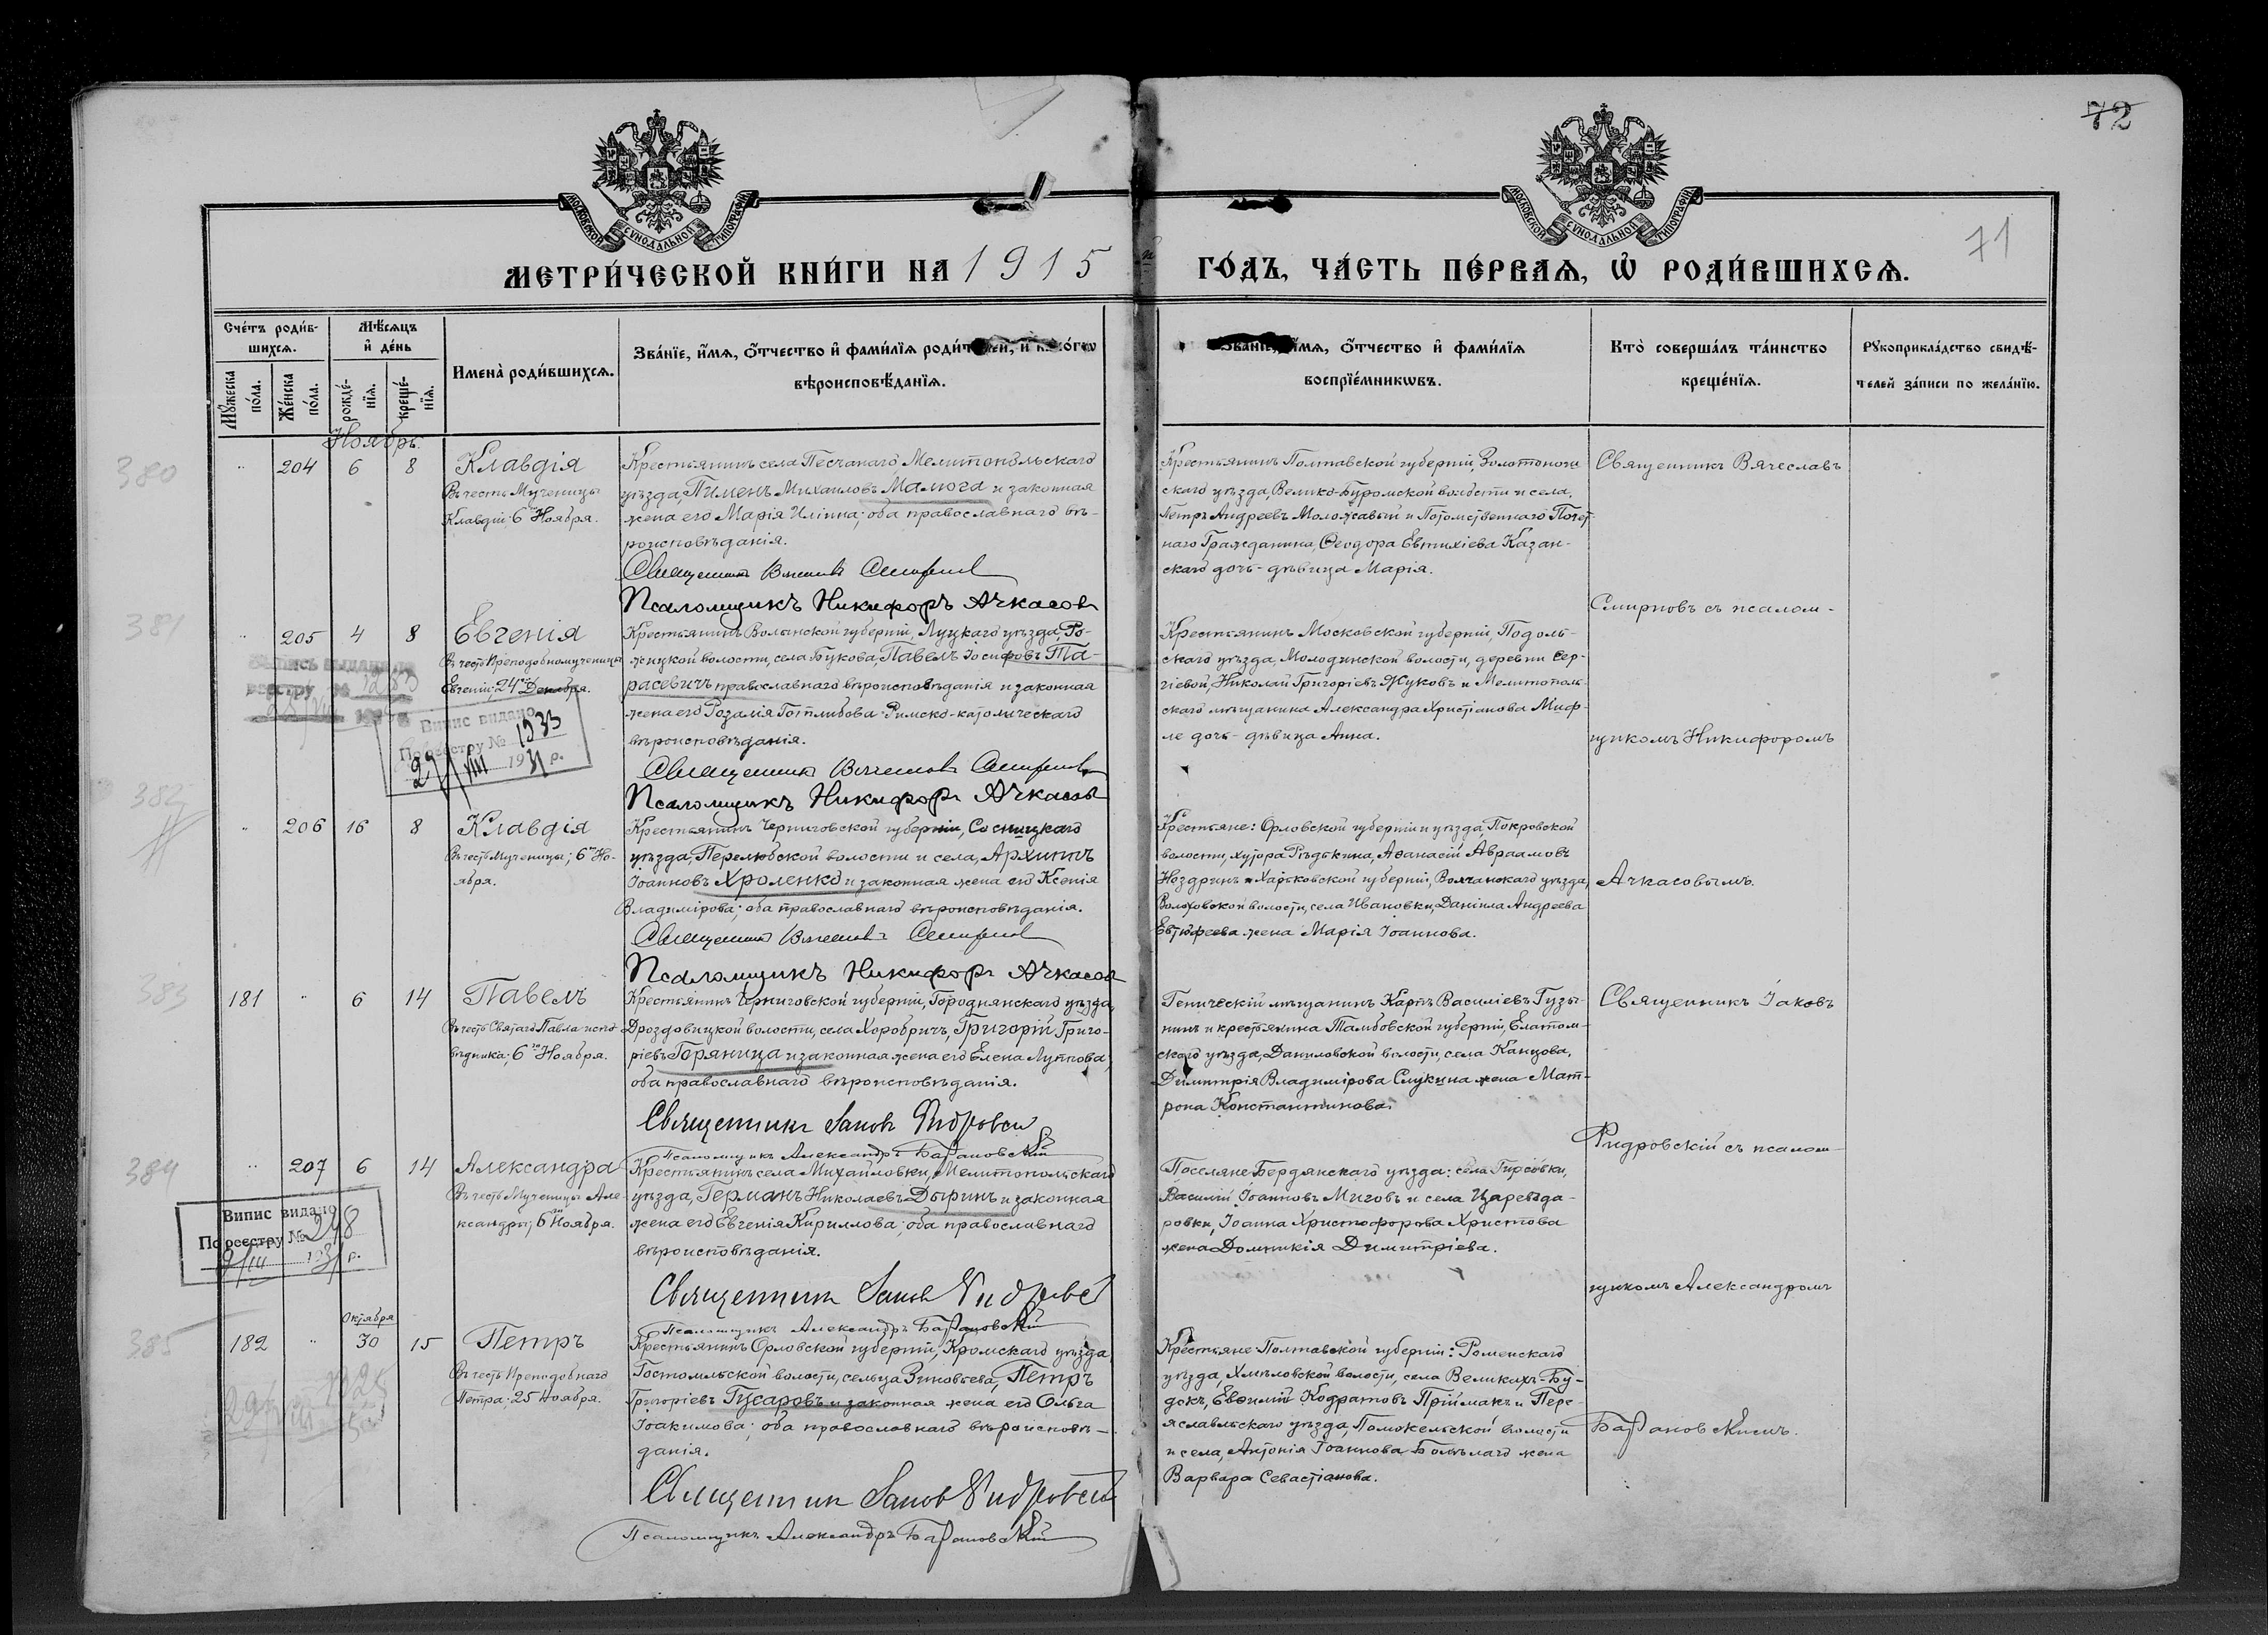 72
71
МОСКОВСКОЙ СУНОДАЛЬНОЙ ТИПОГРАФІИ
МОСКОВСКОЙ СУНОДАЛЬНОЙ ТИПОГРАФІИ
МЕТРИ́ЧЕСКОЙ КНИ́ГИ НА 1915 й ГО́ДЪ, ЧА́СТЬ ПЕ́РВАѦ, Ѡ РОДИ́ВШИХСѦ.
Сче́тъ роди́вшихсѧ.
Мѣ́сѧцъ и де́нь
Имена̀ роди́вшихсѧ.
Зва́нїе, и́мѧ, о́тчество и фами́лїѧ роди́телей, и
вѣроисповѣ́данїѧ.
Зва́нїе, и́мѧ, о́тчество и фами́лїѧ
воспрїе́мникѡвъ.
Кто̀ соверша́лъ та́инство
креще́нїѧ.
Рꙋкоприкла́дство свидѣ́-
телей за́писи по жела́нїю.
Мꙋ́жеска по́ла.
Же́нска по́ла.
рожде́нїѧ.
креще́нїѧ.
Ноябрь.
380
204 6 8 Клавдія
Въ честь Мученицы
Клавдіи; 6го Ноября.
Крестьянинъ села Песчанаго Мелитопольскаго
уѣзда, Пименъ Михаиловъ Малюга и законная
жена его Марія Иліина; оба православнаго вѣ-
роисповѣданія.
Священникъ Вячеславъ Смирновъ
Псаломщикъ Никифоръ Ачкасовъ
Крестьянинъ Полтавской губерніи, Золотоно
скаго уѣзда, Велико-Буромской волости и села,
Петръ Андреевъ Моложавый и Потомственнаго Почет
наго Гражданина, Ѳеодора Евтихіева Казан-
скаго дочь-дѣвица Марія.
Священникъ Вячеславъ
Смирновъ съ псалом-
щикомъ Никифоромъ
Ачкасовымъ.
381
205 4 8 Евгенія
Въ честь Преподобномученицы
Евгеніи; 24го Декабря.
Крестьянинъ Волынской губерніи, Луцкаго уѣзда, Ро-
жицкой волости, села Букова, Павелъ Іосифовъ Та-
расевичъ православнаго вѣроисповѣданія и законная
жена его Розалія Готлибова Римско-католическаго
вѣроисповѣданія.
Священникъ Вячеславъ Смирновъ
Псаломщикъ Никифоръ Ачкасовъ
Крестьянинъ Московской губерніи, Подоль-
скаго уѣзда, Молодинской волости, деревни Сер-
гіевой, Николай Григоріевъ Жуковъ и Мелитополь-
скаго мѣщанина Александра Христіанова Миф-
ле дочь-дѣвица Анна.
Випис видано
По реестру № 1233
VIII 1931 р.
382
206 16 8 Клавдія
Въ честь Мученицы; 6го Но-
ября.
Крестьянинъ Черниговской губерніи, Сосницкаго
уѣзда, Перелюбской волости и села, Архиппъ
Іоанновъ Хроленко и законная жена его Ксенія
Владимірова; оба православнаго вѣроисповѣданія.
Священникъ Вячеславъ Смирновъ
Псаломщикъ Никифоръ Ачкасовъ
Крестьяне: Орловской губерніи и уѣзда, Покровской
волости, хутора Рѣдькина, Аѳанасій Авраамовъ
Ноздринъ и Харьковской губерніи, Волчанскаго уѣзда,
Волоховской волости, села Ивановки, Даніила Андреева
Евтюфеева жена Марія Іоаннова.
383
181 6 14 Павелъ
Въ честь Святаго Павла испо-
вѣдника; 6го Ноября.
Крестьянинъ Черниговской губерніи, Городнянскаго уѣзда,
Дроздовицкой волости, села Хоробричъ, Григорій Григо-
ріевъ Горяница и законная жена его Елена Луппова;
оба православнаго вѣроисповѣданія.
Священникъ Іаковъ Ридровскій
Псаломщикъ Александръ Барановскій
Геническій мѣщанинъ Карпъ Василіевъ Гузы-
нинъ и крестьянина Тамбовской губерніи, Елатом-
скаго уѣзда, Даниловской волости, села Канцова,
Димитрія Владимірова Слукина жена Мат-
рона Константинова.
Священникъ Іаковъ
Ридровскій съ псалом-
щикомъ Александромъ
Барановскимъ.
384
207 6 14 Александра
Въ честь Мученицы Але-
ксандры; 6го Ноября.
Крестьянинъ села Михайловки, Мелитопольскаго
уѣзда, Германъ Николаевъ Дыринъ и законная
жена его Евгенія Кириллова; оба православнаго
вѣроисповѣданія.
Священникъ Іаковъ Ридровскій
Псаломщикъ Александръ Барановскій
Поселяне Бердянскаго уѣзда: села Гирсовки,
Василій Іоанновъ Миговъ и села Царевода-
ровки, Іоанна Христофорова Христова
жена Домникія Димитріева.
Випис видано
По реестру № 248
9/III 1931 р.
385
Октября
182 30 15 Петръ
Въ честь Преподобнаго
Петра; 25 Ноября.
Крестьянинъ Орловской губерніи, Кромскаго уѣзда,
Гостомльской волости, сельца Зиновьева, Петръ
Григоріевъ Гусаровъ и законная жена его Ольга
Іоакимова; оба православнаго вѣроисповѣ-
данія.
Священникъ Іаковъ Ридровскій
Псаломщикъ Александръ Барановскій
Крестьяне Полтавской губерніи: Роменскаго
уѣзда, Хмѣловской волости, села Великихъ-Бу-
докъ, Евѳимій Кодратовъ Пріймакъ и Пере-
яславльскаго уѣзда, Помокельской волости
и села, Антонія Іоаннова жена
Варвара Севастіанова.